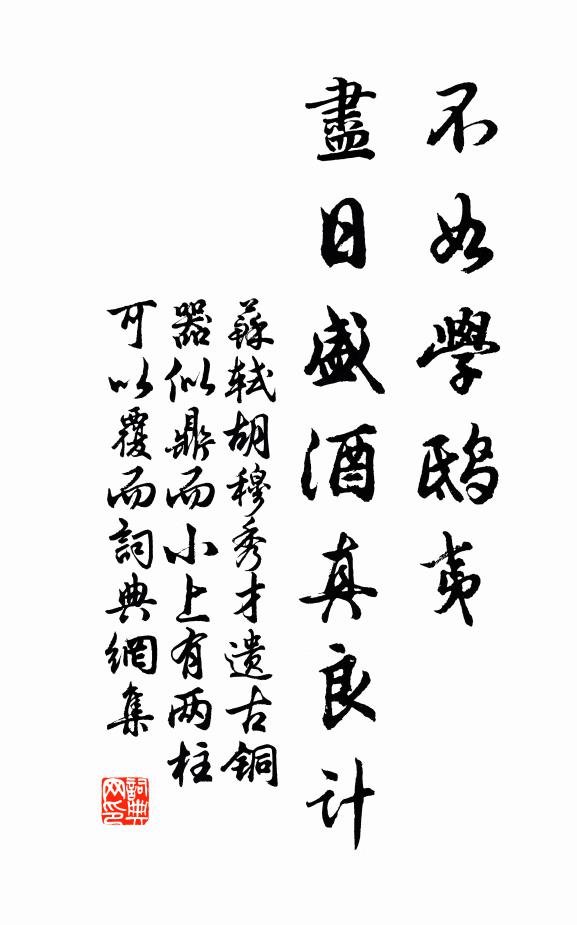 不如學鸱夷
盡日盛酒真良計
蘇軾胡穆秀才遗古铜
器似鼎而小上有两柱
可以覆而詞典網集
詞典网印